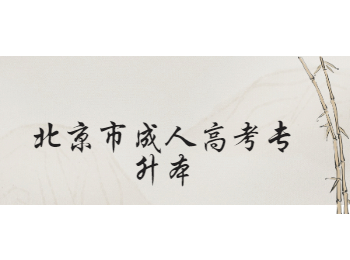 北京市成人高考专
升本